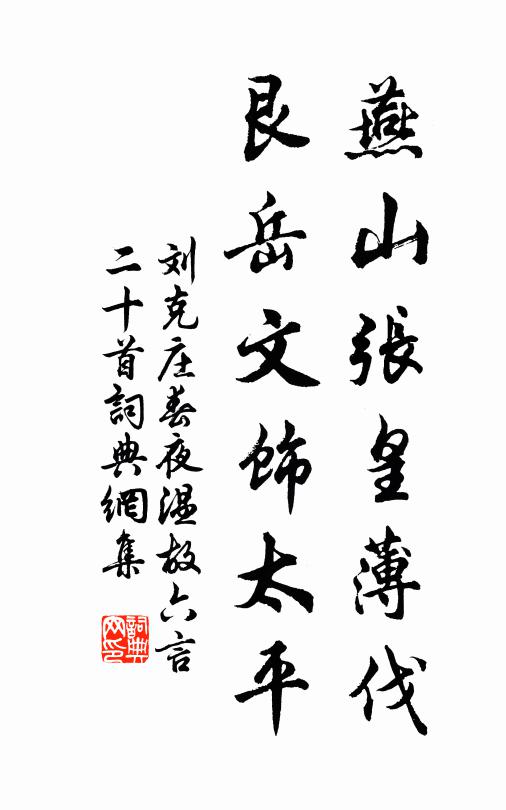 燕山張皇薄伐
艮岳文飾太平
刘克庄春夜温故六言
二十首詞典網集
詞典网印